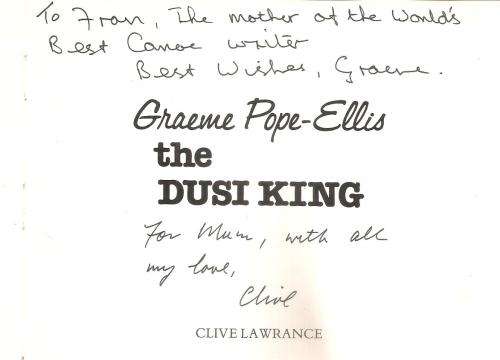 To Fran, The mother of the World's
Best Canoe writer
Best Wishes, Graeme.
Graeme Pope-Ellis
the
DUSI KING
For Mum, with all
my love,
Clive
CLIVE LAWRANCE